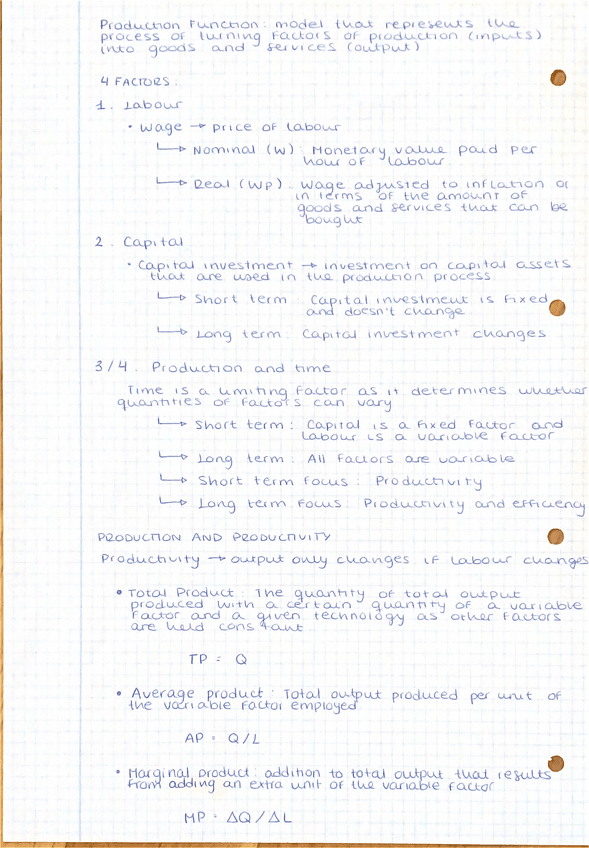 Production Function: model that represents the
process of turning factors of production (inputs)
into goods and services (output)
4 FACTORS:
1. Labour
• Wage → price of labour
↳ Nominal (W): Monetary value paid per
hour of labour
↳ Real (Wp): Wage adjusted to inflation or
in terms of the amount of
goods and services that can be
bought
2. Capital
• Capital investment → investment on capital assets
that are used in the production process
↳ Short term: Capital investment is fixed
and doesn't change
↳ Long term: Capital investment changes
3/4. Production and time
Time is a limiting factor as it determines whether
quantities of factors can vary
↳ Short term: Capital is a fixed factor and
labour is a variable factor
↳ Long term: All factors are variable
↳ Short term focus: Productivity
↳ Long term focus: Productivity and efficiency
PRODUCTION AND PRODUCTIVITY
Productivity → output only changes if labour changes
• Total Product: The quantity of total output
produced with a certain quantity of a variable
factor and a given technology as other factors
are held constant
TP = Q
• Average product: Total output produced per unit of
the variable factor employed
AP = Q/L
• Marginal product: addition to total output that results
from adding an extra unit of the variable factor
MP = ΔQ/ΔL